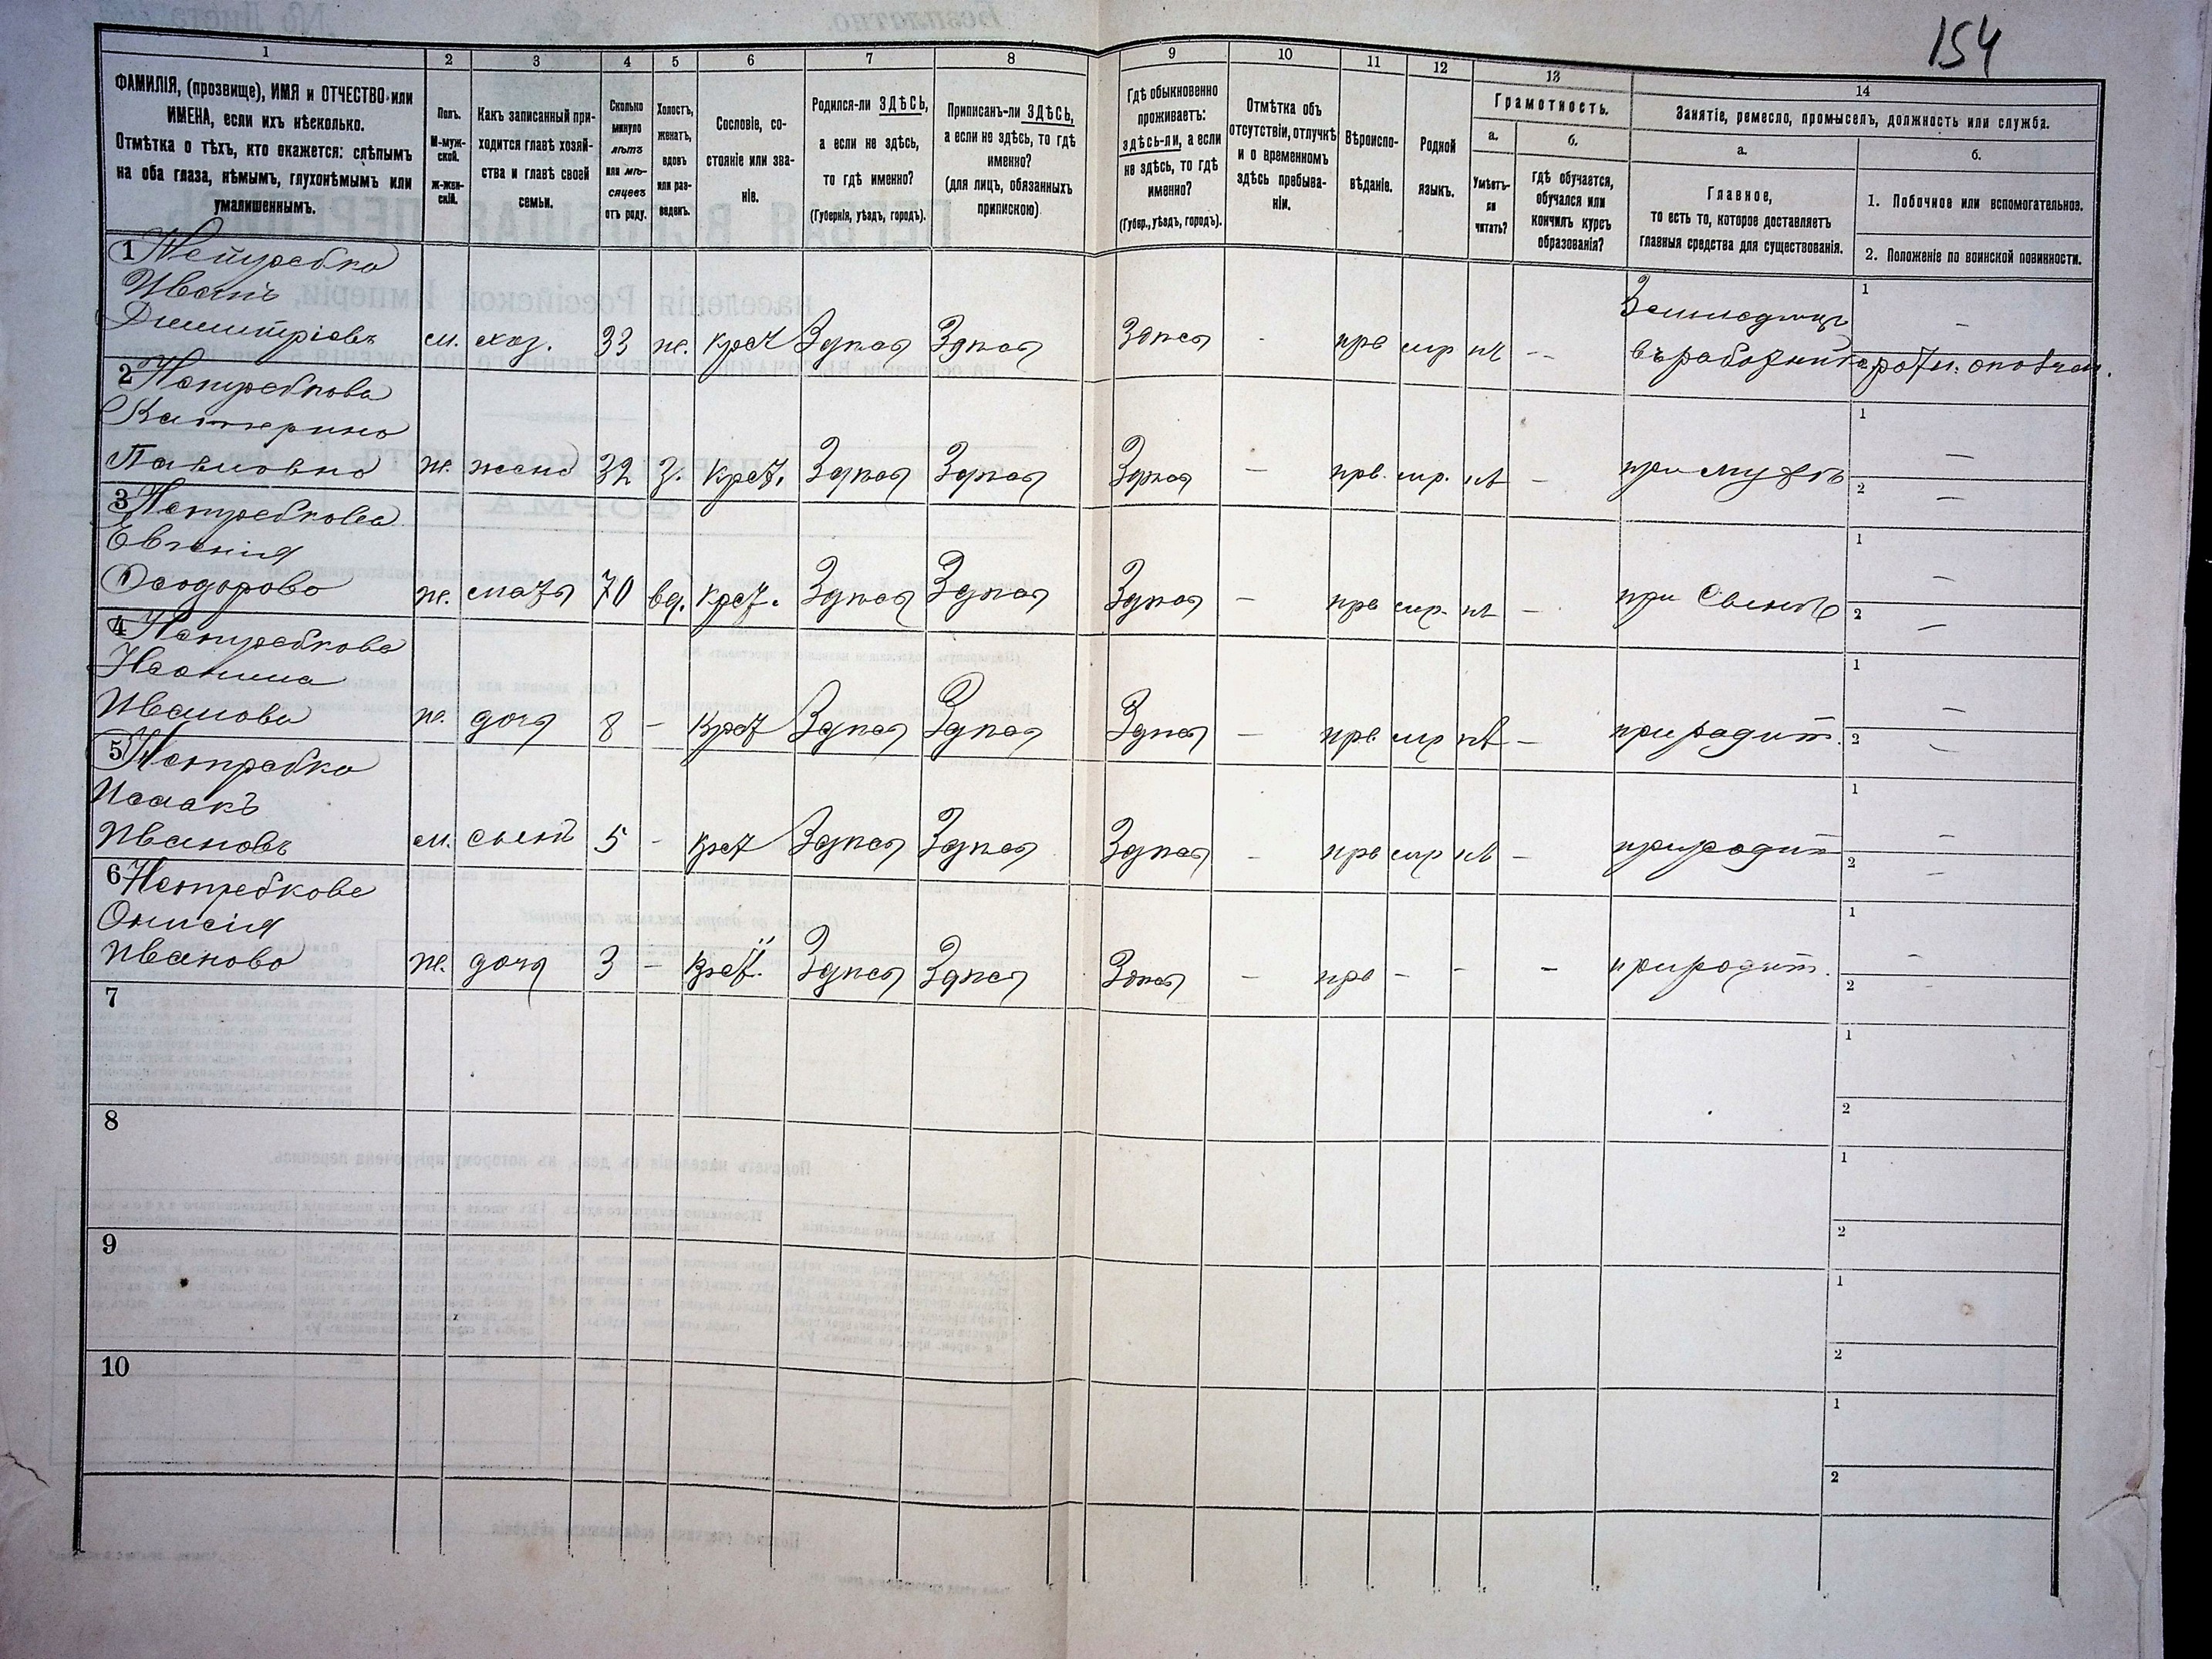 154
1
2
3
4
5
6
7
8
9
10
11
12
13
14
ФАМИЛІЯ, (прозвище), ИМЯ и ОТЧЕСТВО или
ИМЕНА, если ихъ нѣсколько.
Отмѣтка о тѣхъ, кто окажется: слѣпымъ
на оба глаза, нѣмымъ, глухонѣмымъ или
умалишеннымъ.
Полъ.
М-муж-
ской.
ж-жен-
скій.
Какъ записанный при-
ходится главѣ хозяй-
ства и главѣ своей
семьи.
Сколько
минуло
лѣтъ
или мѣ-
сяцевъ
отъ роду.
Холостъ,
женатъ,
вдовъ
или раз-
веденъ.
Сословіе, со-
стояніе или зва-
ніе.
Родился-ли ЗДѢСЬ,
а если не здѣсь,
то гдѣ именно?
(Губернія, уѣздъ, городъ).
Приписанъ-ли ЗДѢСЬ,
а если не здѣсь, то гдѣ
именно?
(для лицъ, обязанныхъ
припискою)
Гдѣ обыкновенно
проживаетъ:
здѣсь-ли, а если
не здѣсь, то гдѣ
именно?
(Губер., уѣздъ, городъ).
Отмѣтка объ
отсутствіи, отлучкѣ
и о временномъ
здѣсь пребыва-
ніи.
Вѣроиспо-
вѣданіе.
Родной
языкъ.
Грамотность.
а.
Умѣетъ-
ли
читать?
б.
гдѣ обучается,
обучался или
кончилъ курсъ
образованія?
Занятіе, ремесло, промыселъ, должность или служба.
а.
Главное,
то есть то, которое доставляетъ
главныя средства для существованія.
б.
1. Побочное или вспомогательное.
2. Положеніе по воинской повинности.
1 Нетребка
Иванъ
Димитріевъ м. хоз. 33 ж. крест Здѣся Здѣся Здѣся - прв мр нѣ --
1 -
2 Нетребкова
Катерина
Павловна ж. жена 32 з. Крест. Здѣся Здѣся Здѣся - прв. мр. нѣ - при мужѣ
1 -
2 -
3 Нетребкова
Евгенія
Ѳеодорова ж. мать 70 вд. Крест. Здѣся Здѣся Здѣся - прв мр. нѣ - при сынѣ
1 -
2 -
4 Нетребкова
Иванова ж. дочь 8 - Крест Здѣся Здѣся Здѣся - прв. мр нѣ - при родит.
1 -
2 -
5 Нетребка
Исаакъ
Ивановъ м. сынъ 5 - Крест Здѣся Здѣся Здѣся - прв мр нѣ - при родит
1 -
2 -
6 Нетребкова
Онисія
Иванова ж. дочь 3 - Крест. Здѣся Здѣся Здѣся - прв - - - при родит.
1 -
2
7
1
2
8
1
2
9
1
2
10
1
2